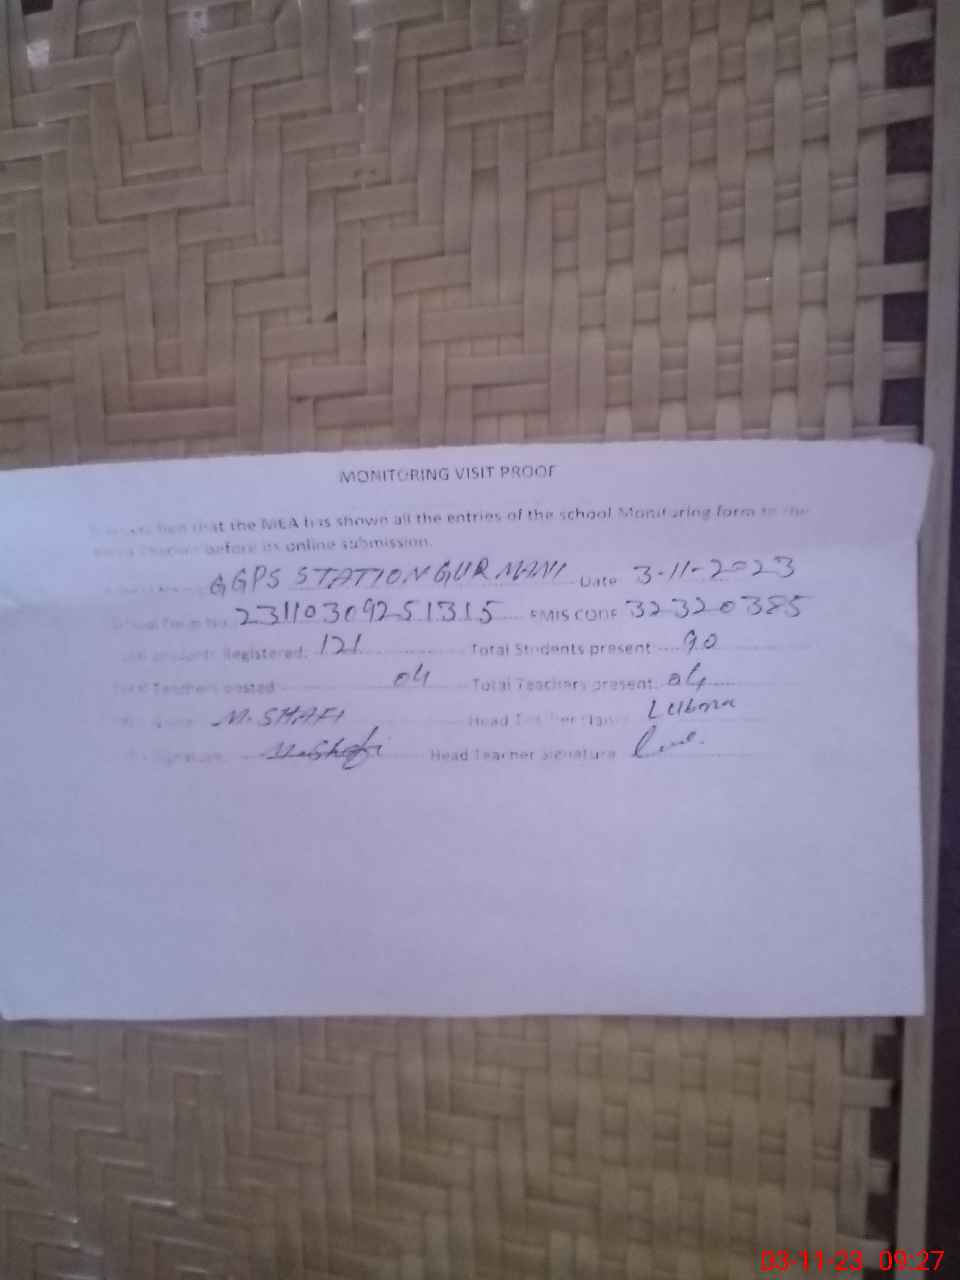 MONITORING VISIT PROOF
that the MEA has shown all the entries of the school Monitoring form to the
before its online submission.
GGPS STATION GURMANI Date 3-11-2023
School Form No. 23110309251315 EMIS CODE 32320385
Registered: 121 Total Students present 90
Total Teachers posted 04 Total Teachers present. 04
Name M. SHAFI Head Teacher Name Lubna
Signature. M. Shafi Head Teacher Signature
03-11-23 09:27